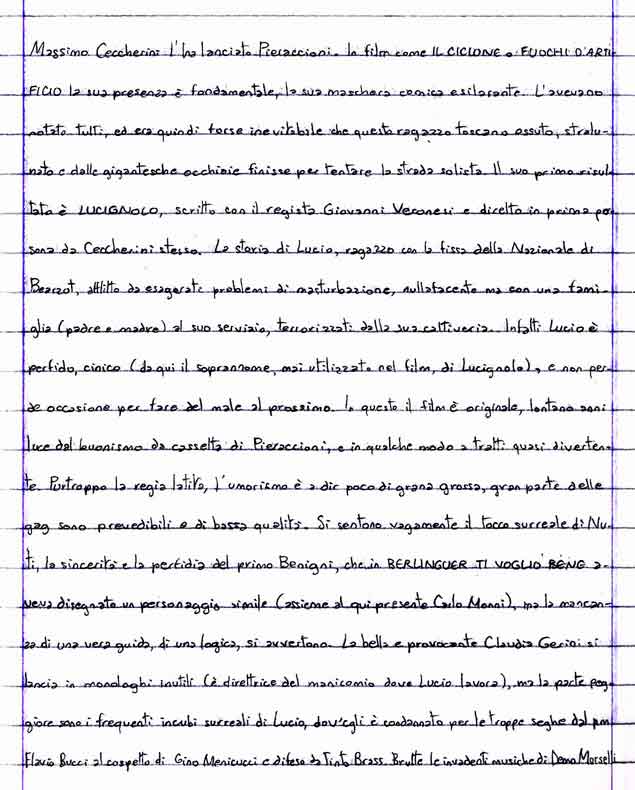 Massimo Ceccherini l'ha lanciato Pieraccioni. In film come IL CICLONE o FUOCHI D'ARTI-
FICIO la sua presenza è fondamentale, la sua maschera comica esilarante. L'avevano
notato tutti, ed era quindi forse inevitabile che questo ragazzo toscano ossuto, stralu-
nato e dalle gigantesche occhiaie finisse per tentare la strada solista. Il suo primo risul-
tato è LUCIGNOLO, scritto con il regista Giovanni Veronesi e diretto in prima per-
sona da Ceccherini stesso. La storia di Lucio, ragazzo con la fissa della Nazionale di
Bearzot, afflitto da esagerati problemi di masturbazione, nullafacente ma con una fami-
glia (padre e madre) al suo servizio, terrorizzati dalla sua cattiveria. Infatti Lucio è
perfido, cinico (da qui il soprannome, mai utilizzato nel film, di Lucignolo), e non per-
de occasione per fare del male al prossimo. In questo il film è originale, lontano anni
luce dal buonismo da cassetta di Pieraccioni, e in qualche modo a tratti quasi diverten-
te. Purtroppo la regia latita, l'umorismo è a dir poco di grana grossa, gran parte delle
gag sono prevedibili e di bassa qualità. Si sentono vagamente il tocco surreale di Nu-
ti, la sincerità e la perfidia del primo Benigni, che in BERLINGUER TI VOGLIO BENE a-
veva disegnato un personaggio simile (assieme al qui presente Carlo Monni), ma la mancan-
za di una vera guida, di una logica, si avvertono. La bella e provocante Claudia Gerini si
lancia in monologhi inutili (è direttrice del manicomio dove Lucio lavora), ma la parte peg-
giore sono i frequenti incubi surreali di Lucio, dov'egli è condannato per le troppe seghe dal pm
Flavio Bucci al cospetto di Gino Menicucci e difeso da Tinto Brass. Brutte le invadenti musiche di Demo Morselli